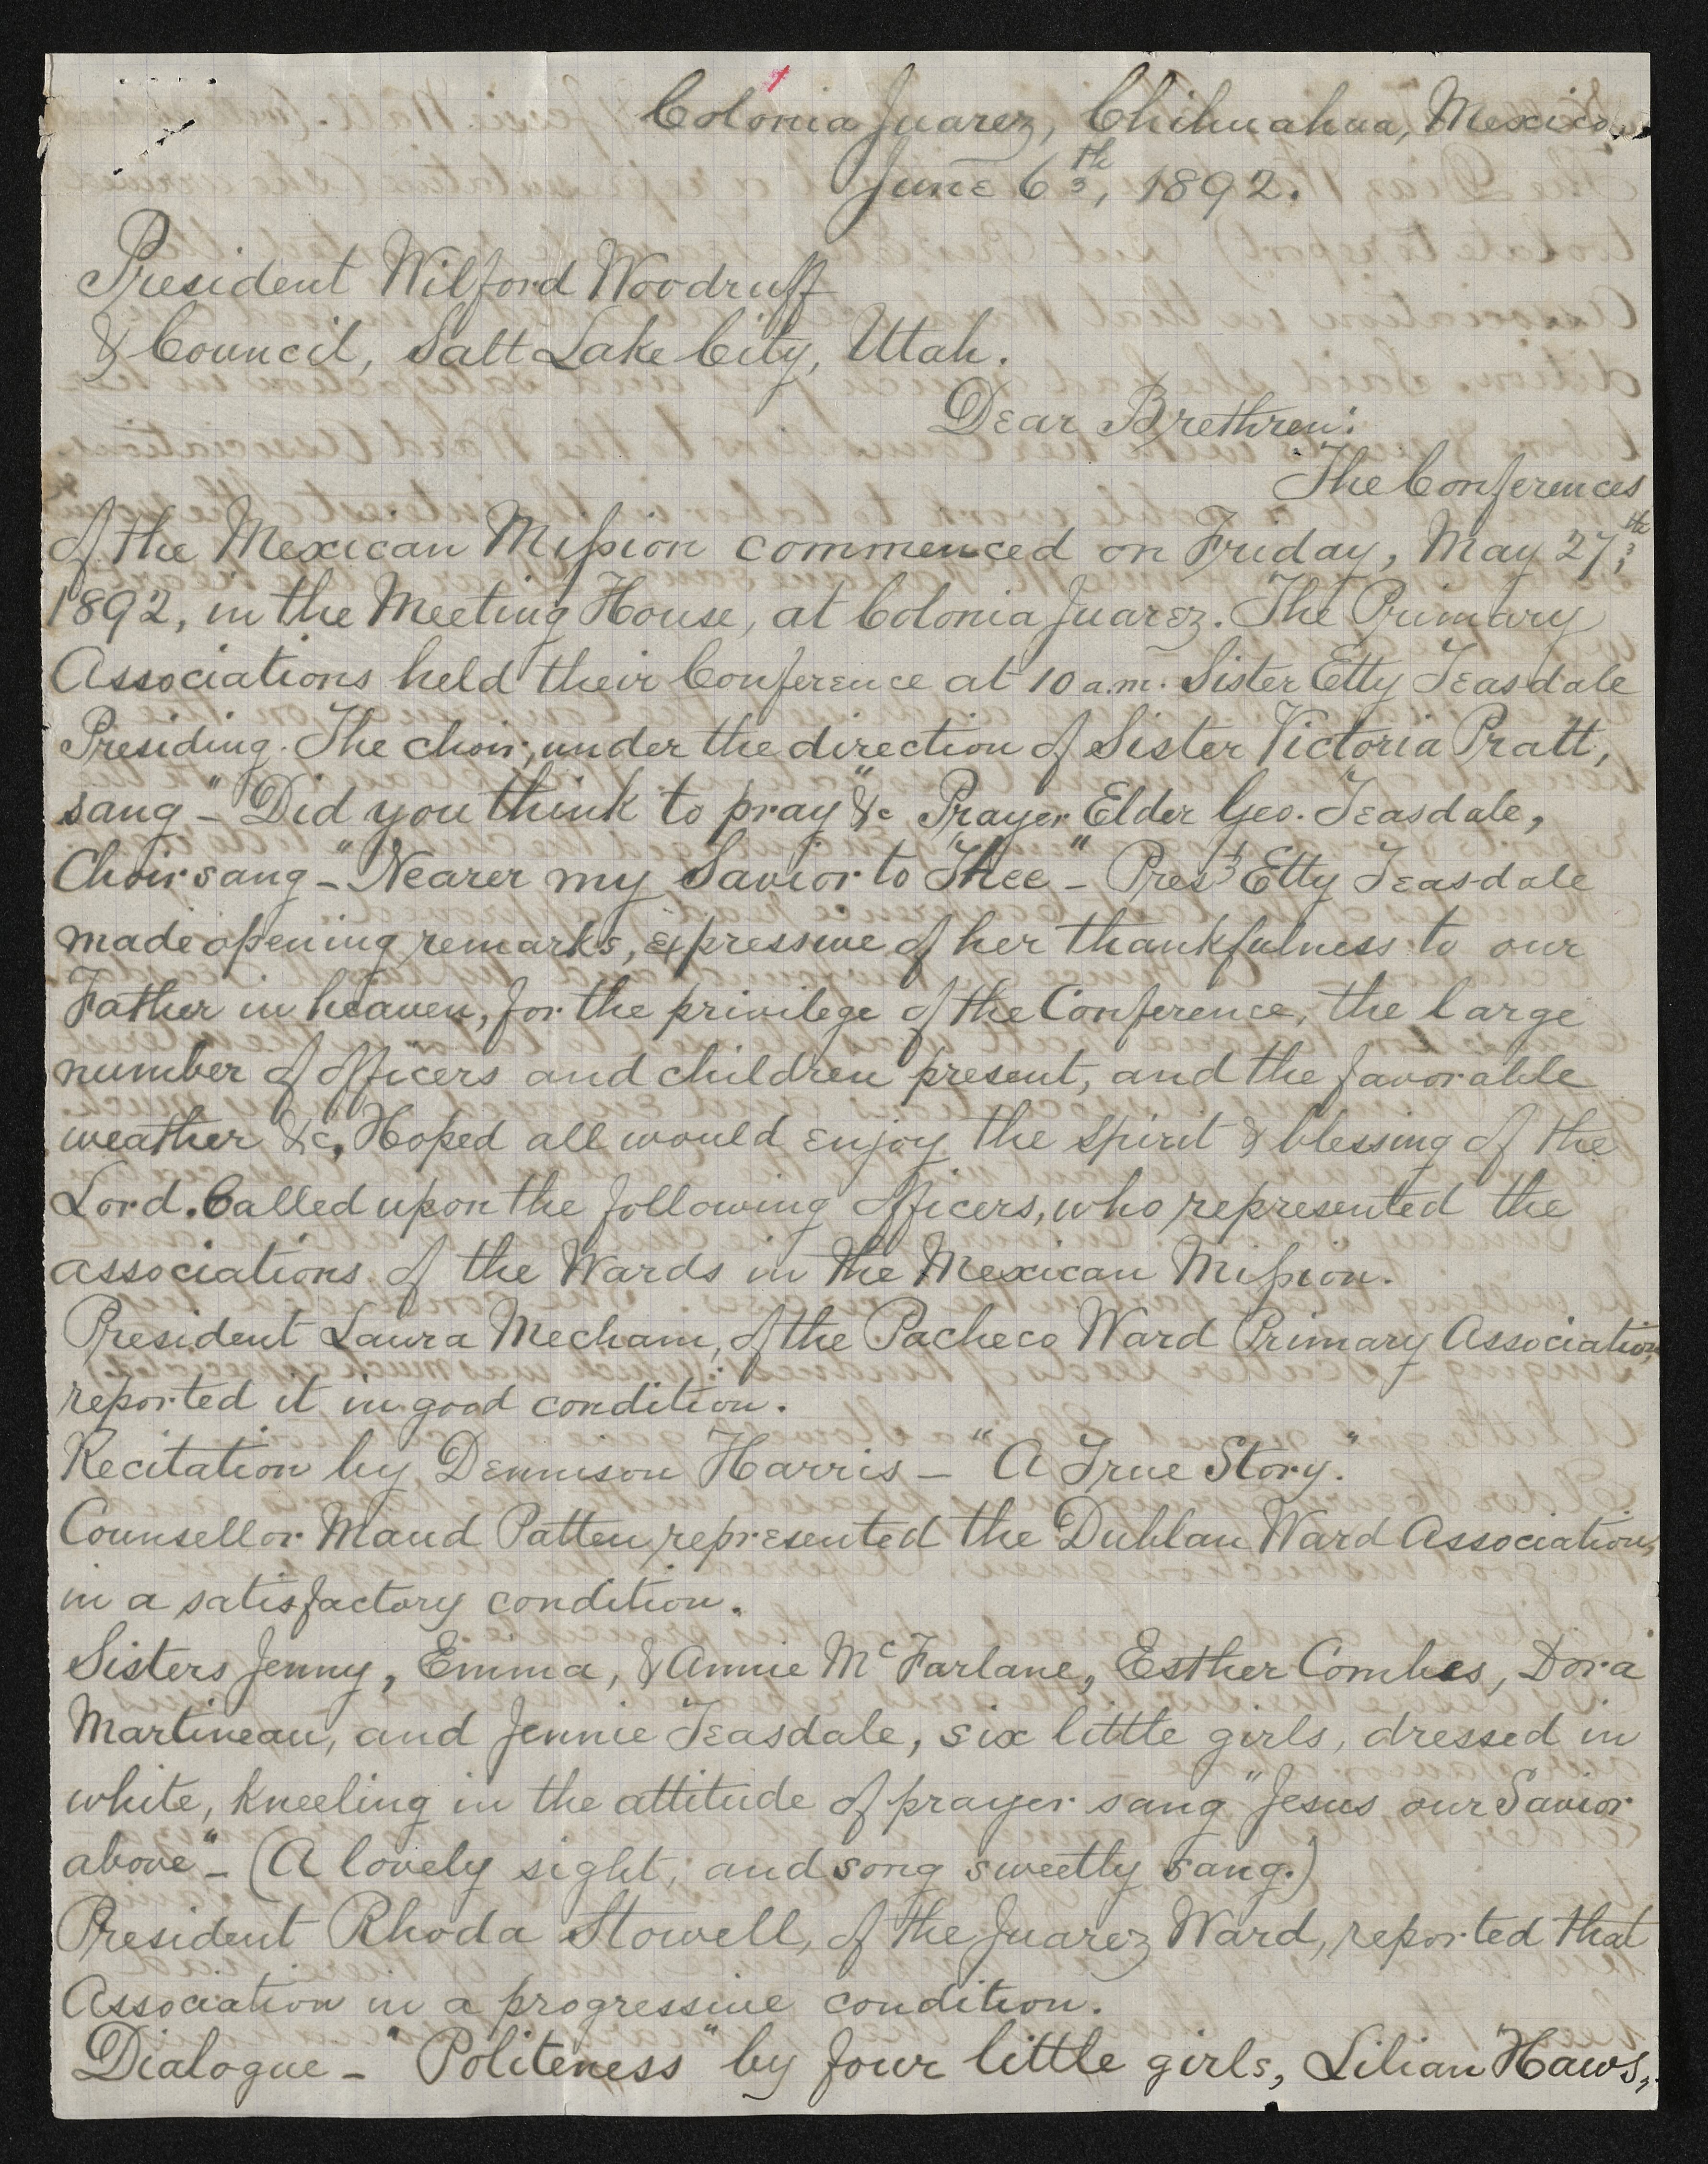 Colonia Juarez, Chihuahua, Mexico,
June 6th, 1892.
President Wilford Woodruff
& Council, Salt Lake City, Utah.
Dear Brethren:
The Conferences
of the Mexican Mission commenced on Friday, May 27th,
1892, in the Meeting House, at Colonia Juarez. The Primary
Associations held their Conference at 10 a.m. Sister Etty Teasdale
Presiding. The choir, under the direction of Sister Victoria Pratt,
sang – "Did you think to pray" &c Prayer Elder Geo. Teasdale,
Choir sang – "Nearer my Savior to Thee" – Prest Etty Teasdale
made opening remarks, expressive of her thankfulness to our
Father in heaven, for the privilege of the Conference, the large
number of officers and children present, and the favorable
weather &c, Hoped all would enjoy the spirit & blessing of the
Lord. Called upon the following officers, who represented the
associations of the Wards in the Mexican Mission.
President Laura Mecham, of the Pacheco Ward Primary Association,
reported it in good condition.
Recitation by Dennison Harris – "A True Story."
Counsellor Maud Patten represented the Dublan Ward Association,
in a satisfactory condition.
Sisters Jenny, Emma, & Annie McFarlane, Esther Combes, Dora
Martineau, and Jennie Teasdale, six little girls, dressed in
white, kneeling in the attitude of prayer sang "Jesus our Savior
above" – (A lovely sight, and song sweetly sang.)
President Rhoda Stowell, of the Juarez Ward, reported that
Association in a progressive condition.
Dialogue – "Politeness" by four little girls, Lilian Haws,